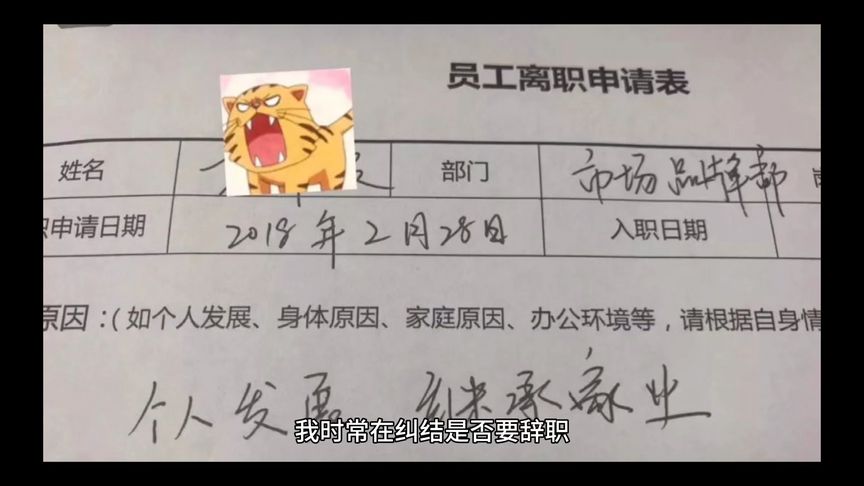 员工离职申请表
姓名 部门 市场品牌部
职申请日期 2018年2月28日 入职日期
原因：(如个人发展、身体原因、家庭原因、办公环境等，请根据自身情
个人发展 继承家业
我时常在纠结是否要辞职